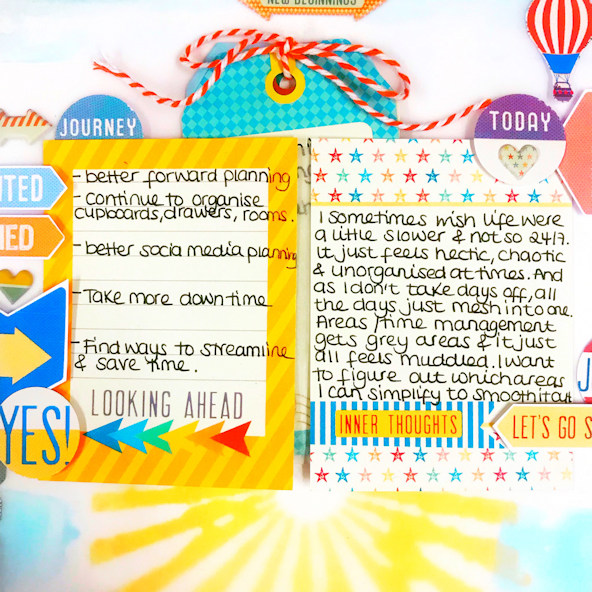 NEW BEGINNINGS
JOURNEY
TODAY
- better forward planning
- Continue to organise
cupboards, drawers, rooms.
- better social media planning
- Take more down-time
- Find ways to streamline
& save time.
LOOKING AHEAD
YES!
I sometimes wish life were
a little slower & not so 24/7.
It just feels hectic, chaotic
& unorganised at times. And
as I don't take days off, all
the days just mesh into one.
Areas/time management
gets grey areas & it just
all feels muddled. I want
to figure out which areas
I can simplify to smooth it out
INNER THOUGHTS
LET'S GO S